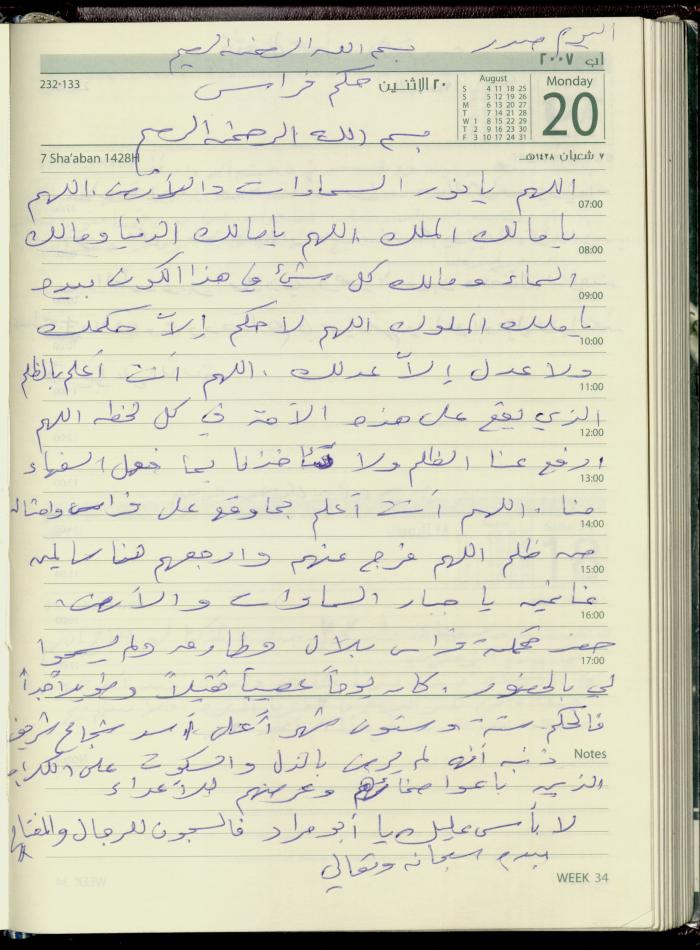 اليوم صدر بسم الله الرحمن الرحيم
آب ٢٠٠٧
232-133 حكم فراس ٢٠ الاثنين August Monday
S 4 11 18 25
S 5 12 19 26
M 6 13 20 27
T 7 14 21 28
W 1 8 15 22 29
T 2 9 16 23 30
F 3 10 17 24 31
20
بسم الله الرحمن الرحيم
7 Sha'aban 1428H ٧ شعبان ١٤٢٨هـ
اللهم يا نور السماوات والأرض، اللهم
07:00
يا مالك الملك اللهم يا مالك الدنيا ومالك
08:00
السماء ومالك كل شيء في هذا الكون بيده
09:00
يا ملك الملوك اللهم لا حكم إلاّ حكمك
10:00
ولا عدل إلاّ عدلك، اللهم أنت أعلم بالظلم
11:00
الذي يقع على هذه الأمة في كل لحظه اللهم
12:00
ارفع عنا الظلم ولا تؤاخذنا بما فعل السفهاء
13:00
منا، اللهم أنت أعلم بما وقع على فراس وامثاله
14:00
من ظلم اللهم فرج عنهم وارجعهم لنا سالمين
15:00
غانمين يا جبار السماوات والأرض.
16:00
حضر محكمة فراس بلال وطارق ولم يسمحوا
17:00
لي بالحضور، كان يوماً عصيباً ثقيلاً وطويلاً جداً
فالحكم ستة وستون شهر أعلى أسد شجاع شريف
ذنبه أنه لم يرضى بالذل والسكوت على الكلاب
Notes
الذين باعوا ضمائرهم وعرضهم للأعداء
لا بأس عليك يا أبو مراد فالسجون للرجال والمفتاح
بيده سبحانه وتعالى
WEEK 34